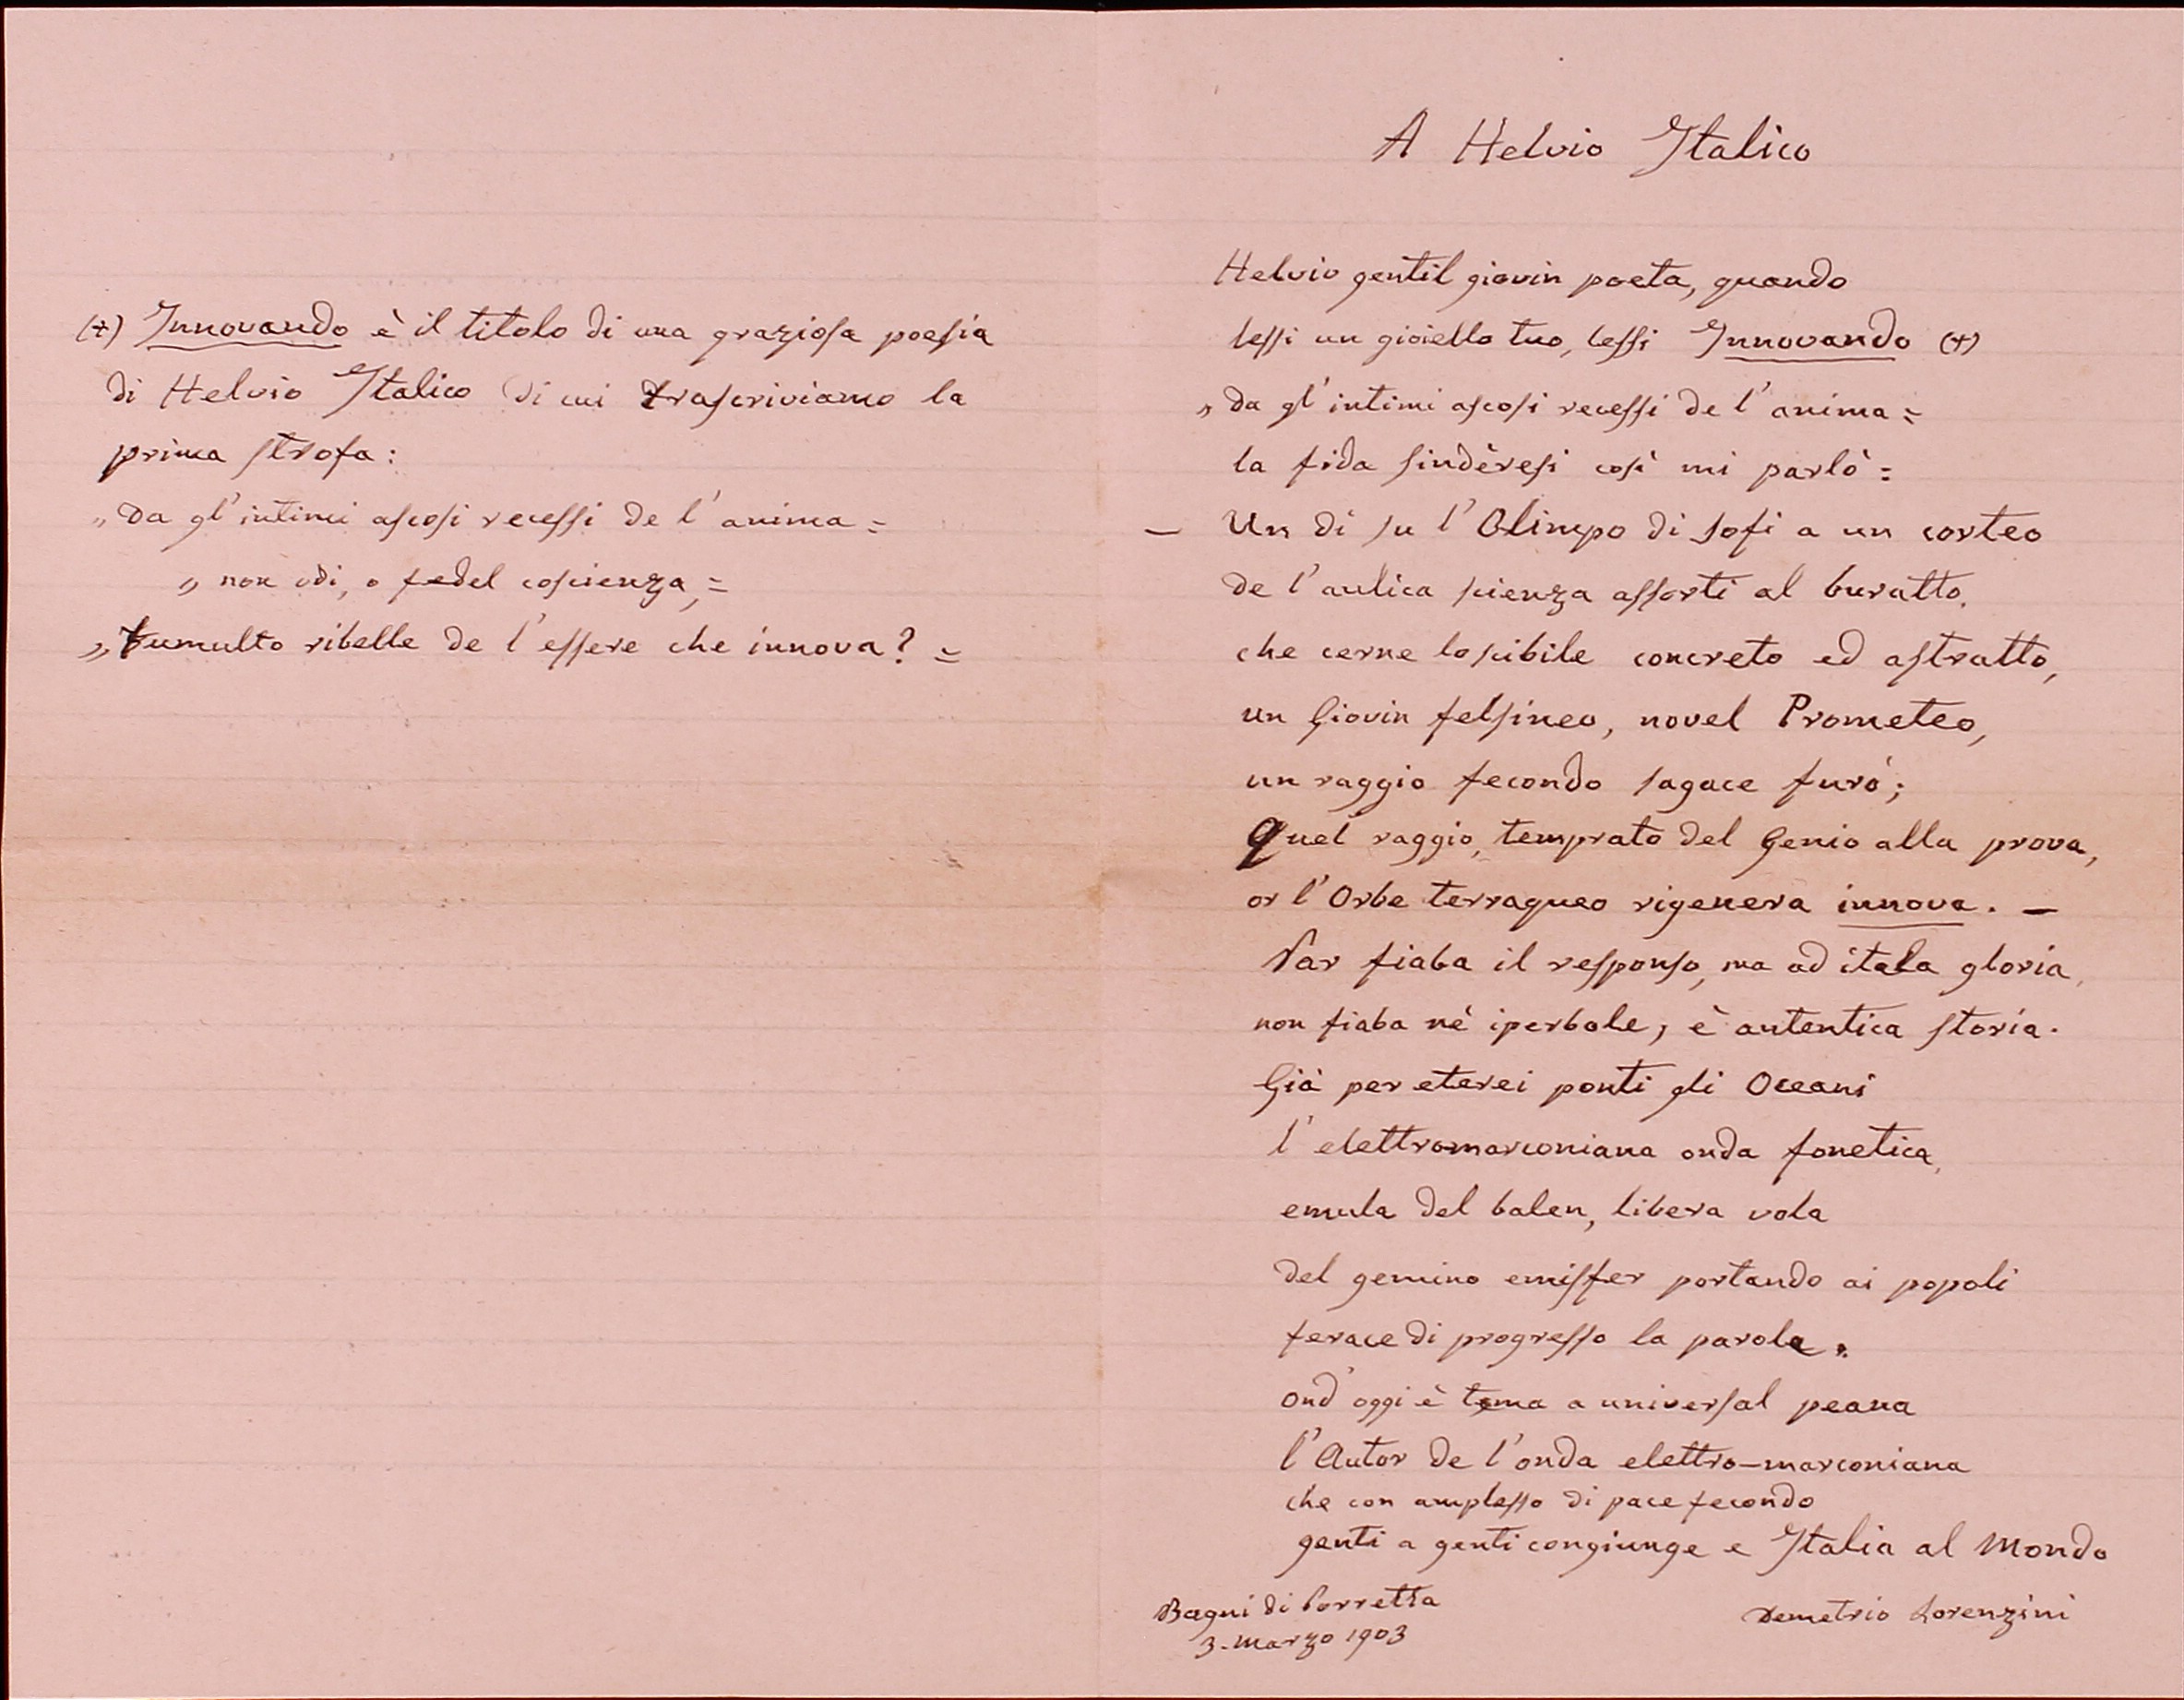 (+) Innovando è il titolo di una graziosa poesia
di Helvio Italico di cui trascriviamo la
prima strofa:
„ Da gl' intimi ascosi recessi de l' anima =
„ non odi, o fedel coscienza, =
„ tumulto ribelle de l' essere che innova? =
A Helvio Italico
Helvio gentil giovin poeta, quando
lessi un gioiello tuo, lessi Innovando (+)
„ Da gl' intimi ascosi recessi de l' anima =
la fida sindèresi così mi parlò =
— Un dì su l' Olimpo di sofi a un corteo
de l' aulica scienza assorti al buratto,
che cerne lo scibile concreto ed astratto,
un Giovin felsineo, novel Prometeo,
un raggio fecondo sagace furò;
quel raggio, temprato del Genio alla prova,
or l' Orbe terraqueo rigenera innova. —
Par fiaba il responso, ma ad itala gloria,
non fiaba nè iperbole, è autentica storia.
Già per eterei ponti gli Oceani
l' elettromarconiana onda fonetica,
emula del balen, libera vola
del gemino emisfer portando ai popoli
ferace di progresso la parola.
ond' oggi è tema a universal peana
l' Autor de l' onda elettro-marconiana
che con amplesso di pace fecondo
genti a genti congiunge e Italia al Mondo
Bagni di Porretta
3. Marzo 1903
Demetrio Lorenzini